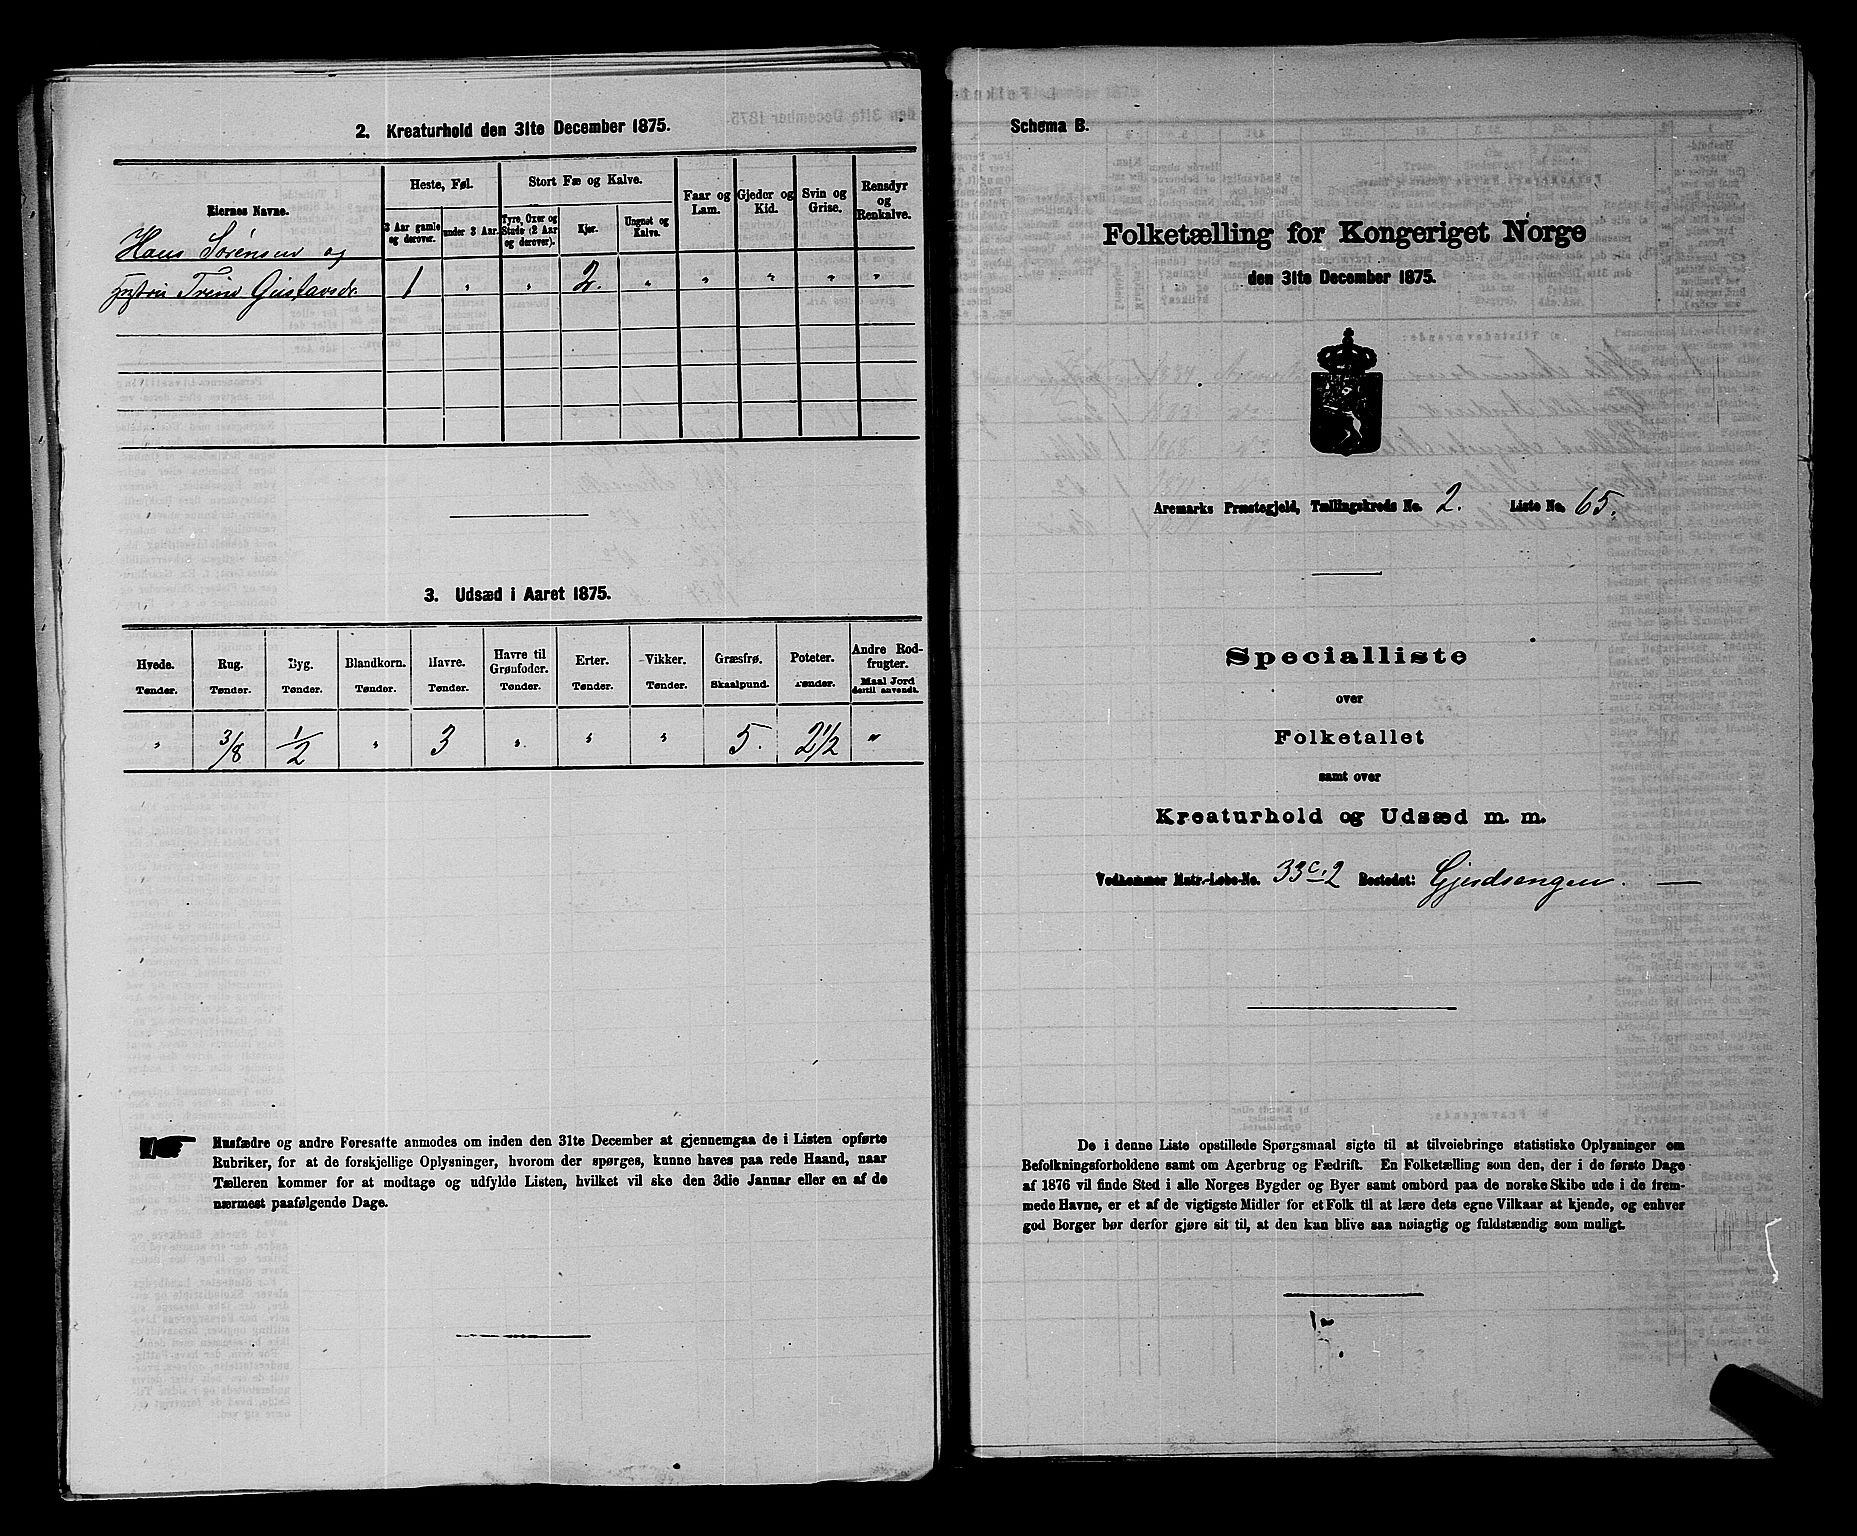 2. Kreaturhold den 31te December 1875.
Eiernes Navne.
Heste, Føl.
Stort Fæ og Kalve.
Faar og Lam.
Gjeder og Kid.
Svin og Grise.
Rensdyr og Renkalve.
3 Aar gamle og derover.
under 3 Aar.
Tyre, Oxer og Stude (2 Aar og derover).
Kjør.
Ungnøt og Kalve.
Hans Sørensen og
Hustru Trine Gustavsdr. 1 " " 2. " " " " "
3. Udsæd i Aaret 1875.
Hvede. Rug. Byg. Blandkorn. Havre. Havre til Grønfoder. Erter. Vikker. Græsfrø. Poteter. Andre Rodfrugter.
Tønder. Tønder. Tønder. Tønder. Tønder. Tønder. Tønder. Tønder. Skaalpund. Tønder. Maal Jord dertil anvendt.
" 3/8 1/2 " 3 " " " 5. 2 1/2 "
Husfædre og andre Foresatte anmodes om inden den 31te December at gjennemgaa de i Listen opførte
Rubriker, for at de forskjellige Oplysninger, hvorom der spørges, kunne haves paa rede Haand, naar
Tælleren kommer for at modtage og udfylde Listen, hvilket vil ske den 3die Januar eller en af de
nærmest paafølgende Dage.
Schema B.
Folketælling for Kongeriget Norge
den 31te December 1875.
Aremarks Præstegjeld, Tællingskreds No. 2. Liste No. 65.
Specialliste
over
Folketallet
samt over
Kreaturhold og Udsæd m. m.
Vedkommer Matr.-Løbe-No. 33c.2 Bostedet: Gjerdsengen.
De i denne Liste opstillede Spørgsmaal sigte til at tilveiebringe statistiske Oplysninger om
Befolkningsforholdene samt om Agerbrug og Fædrift. En Folketælling som den, der i de første Dage
af 1876 vil finde Sted i alle Norges Bygder og Byer samt ombord paa de norske Skibe ude i de frem-
mede Havne, er et af de vigtigste Midler for et Folk til at lære dets egne Vilkaar at kjende, og enhver
god Borger bør derfor gjøre sit til, at den kan blive saa nøiagtig og fuldstændig som muligt.